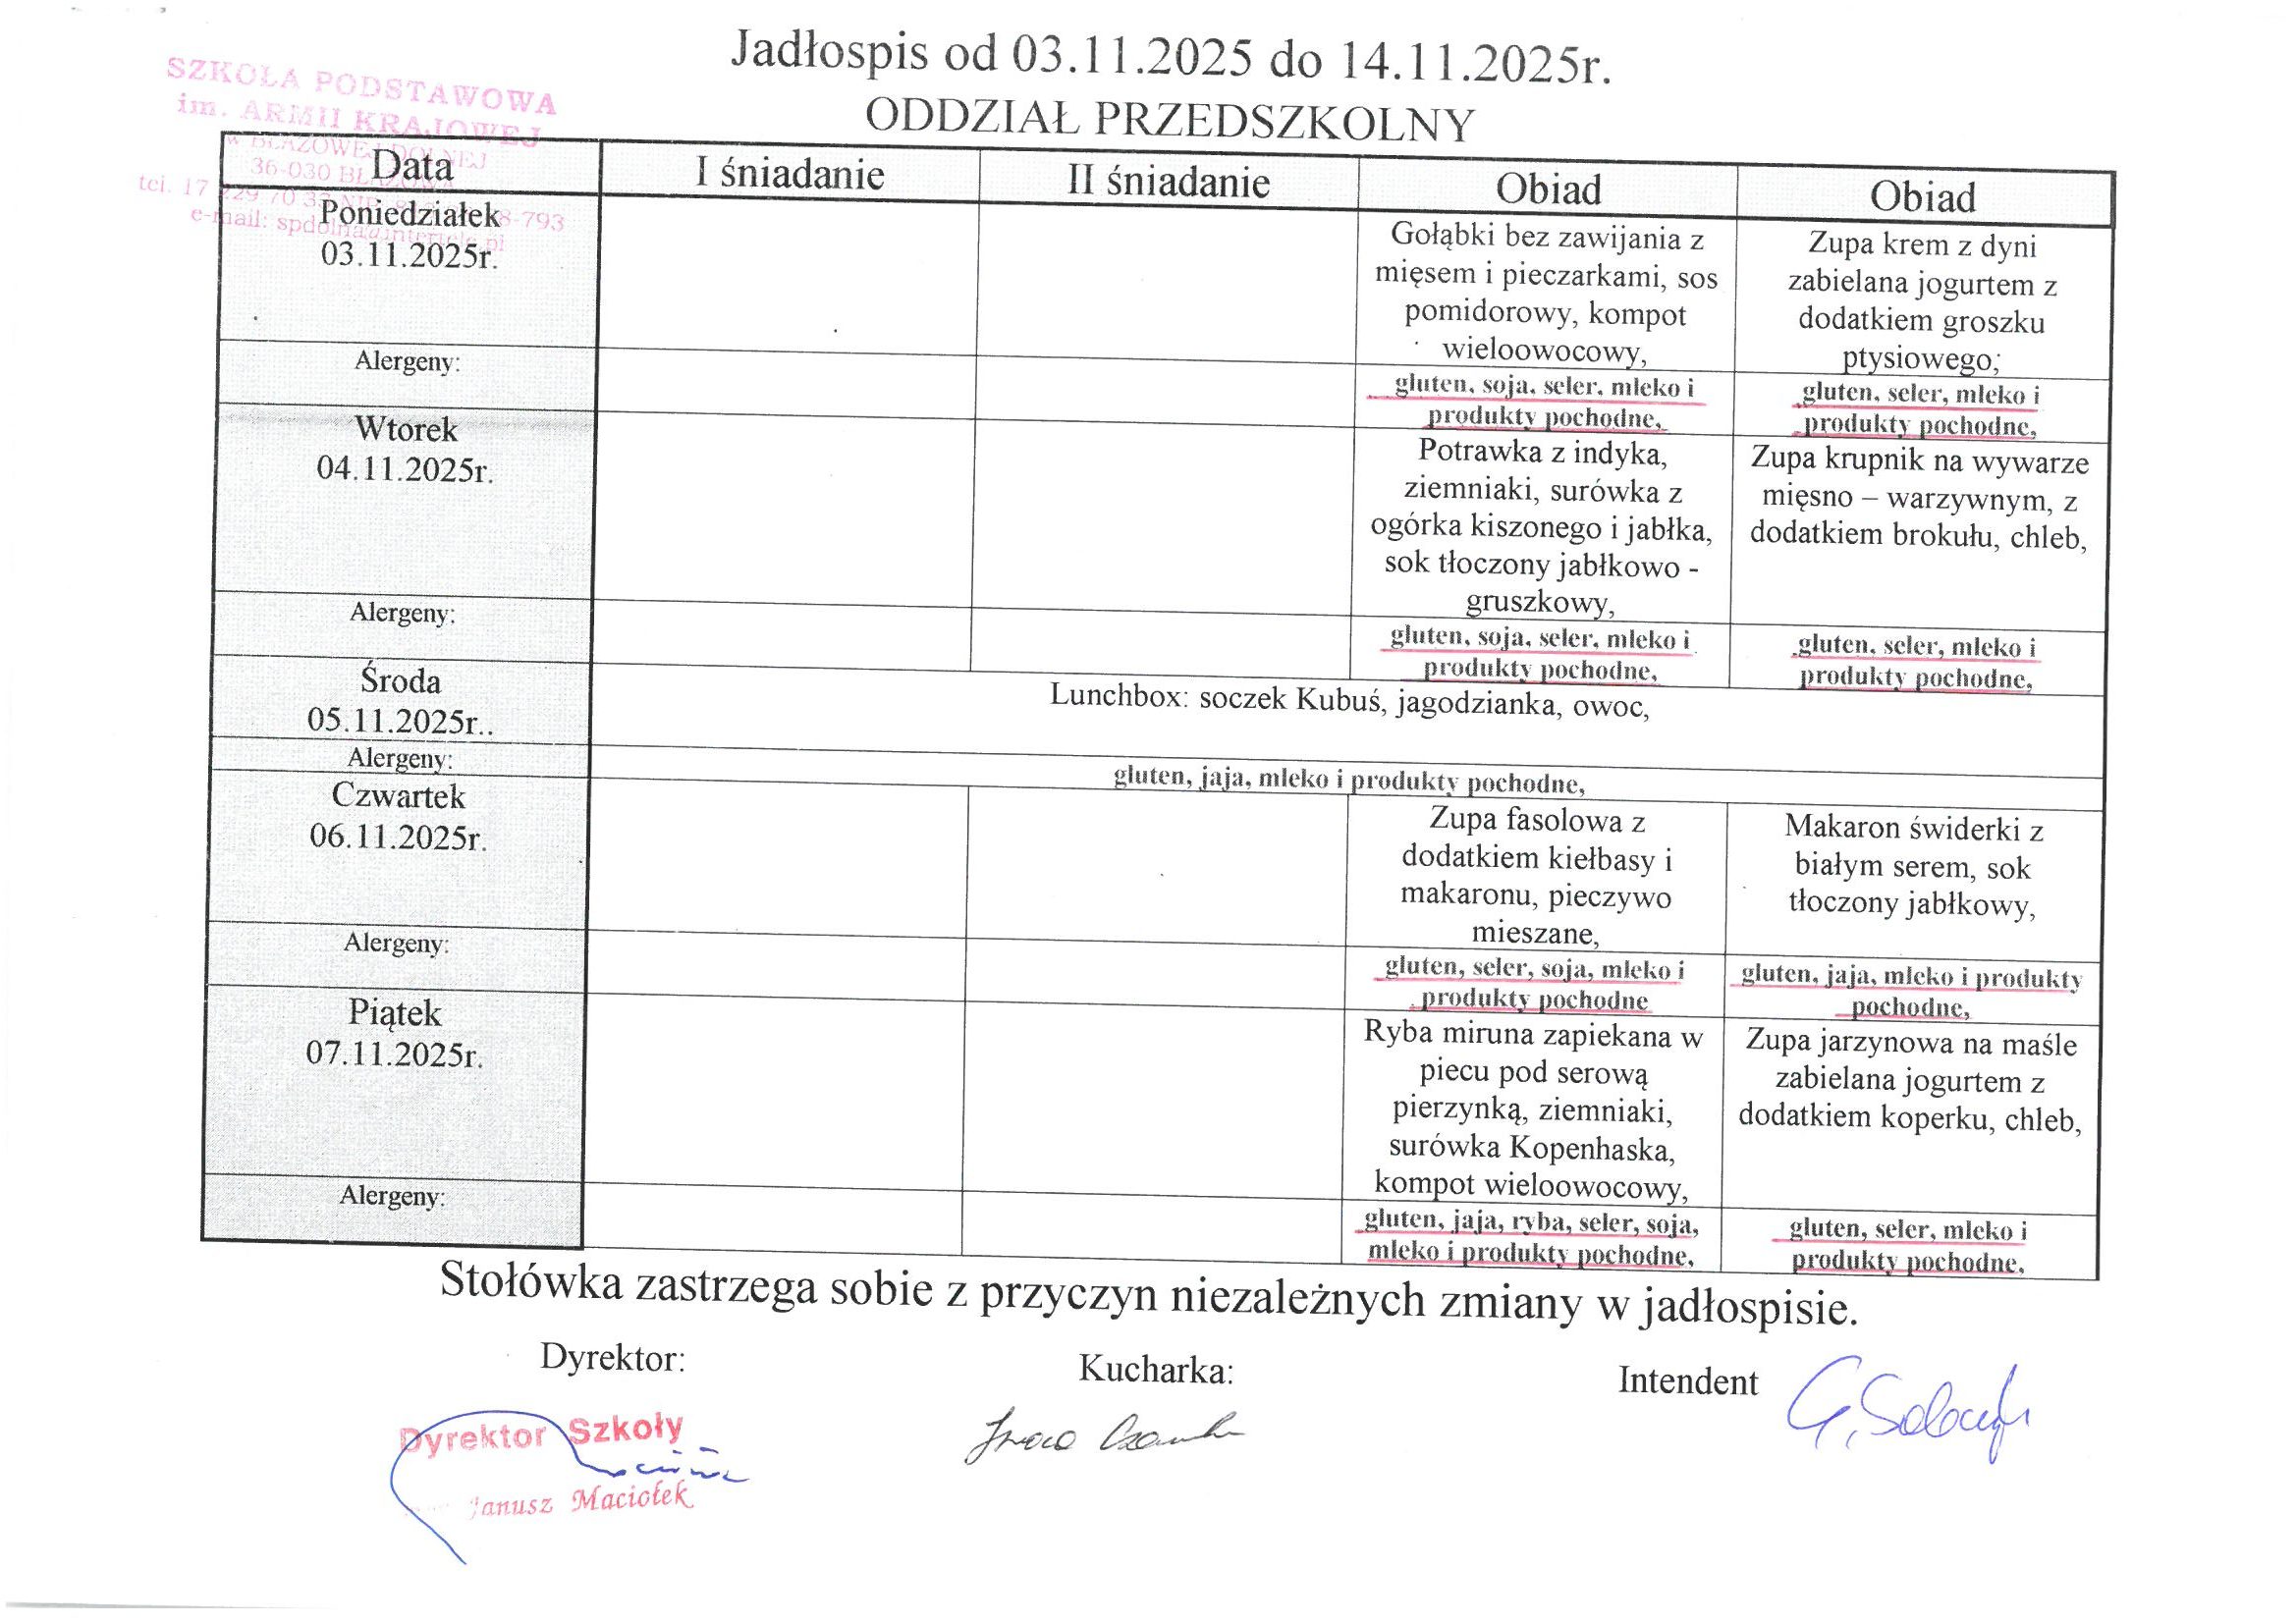 Jadłospis od 03.11.2025 do 14.11.2025r.
ODDZIAŁ PRZEDSZKOLNY
SZKOŁA PODSTAWOWA
im. ARMII KRAJOWEJ
w BŁAŻOWEJ DOLNEJ
36-030 BŁAŻOWA
tel. 17 229 70 33 8-793
e-mail: spdolna@intertele.pl
Data
I śniadanie
II śniadanie
Obiad
Obiad
Poniedziałek
03.11.2025r.
Gołąbki bez zawijania z
mięsem i pieczarkami, sos
pomidorowy, kompot
wieloowocowy,
Zupa krem z dyni
zabielana jogurtem z
dodatkiem groszku
ptysiowego;
Alergeny:
gluten, soja, seler, mleko i
produkty pochodne,
gluten, seler, mleko i
produkty pochodne,
Wtorek
04.11.2025r.
Potrawka z indyka,
ziemniaki, surówka z
ogórka kiszonego i jabłka,
sok tłoczony jabłkowo -
gruszkowy,
Zupa krupnik na wywarze
mięsno – warzywnym, z
dodatkiem brokułu, chleb,
Alergeny:
gluten, soja, seler, mleko i
produkty pochodne,
gluten, seler, mleko i
produkty pochodne,
Środa
05.11.2025r..
Lunchbox: soczek Kubuś, jagodzianka, owoc,
Alergeny:
gluten, jaja, mleko i produkty pochodne,
Czwartek
06.11.2025r.
Zupa fasolowa z
dodatkiem kiełbasy i
makaronu, pieczywo
mieszane,
Makaron świderki z
białym serem, sok
tłoczony jabłkowy,
Alergeny:
gluten, seler, soja, mleko i
produkty pochodne
gluten, jaja, mleko i produkty
pochodne,
Piątek
07.11.2025r.
Ryba miruna zapiekana w
piecu pod serową
pierzynką, ziemniaki,
surówka Kopenhaska,
kompot wieloowocowy,
Zupa jarzynowa na maśle
zabielana jogurtem z
dodatkiem koperku, chleb,
Alergeny:
gluten, jaja, ryba, seler, soja,
mleko i produkty pochodne,
gluten, seler, mleko i
produkty pochodne,
Stołówka zastrzega sobie z przyczyn niezależnych zmiany w jadłospisie.
Dyrektor:
Kucharka:
Intendent
Dyrektor Szkoły
Janusz Maciołek